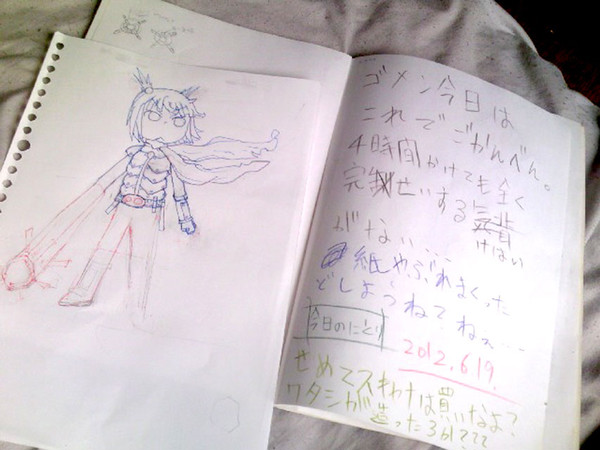 ゴメン今日は
これでごかんべん。
4時間かけても全く
完せいする気背
けはい
がない...
紙やぶれまくった
どしよってねてねぇ...
今日のにとり
2012.6.19.
せめてスキわけは買いなよ?
ワタシが造った361???